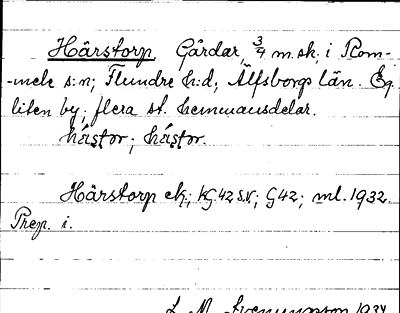 Härstorp Gårdar, 3/4 m. sk. i Rom-
-mele s:n; Flundre h:d, Älfsborgs län. Eg.
liten by; flera st. hemmansdelar.
hástor; hástor.
Härstorp ek.; KG 42 S.V.; G 42; ml. 1932.
Prep. i.
L. M. Svenungsson 1934